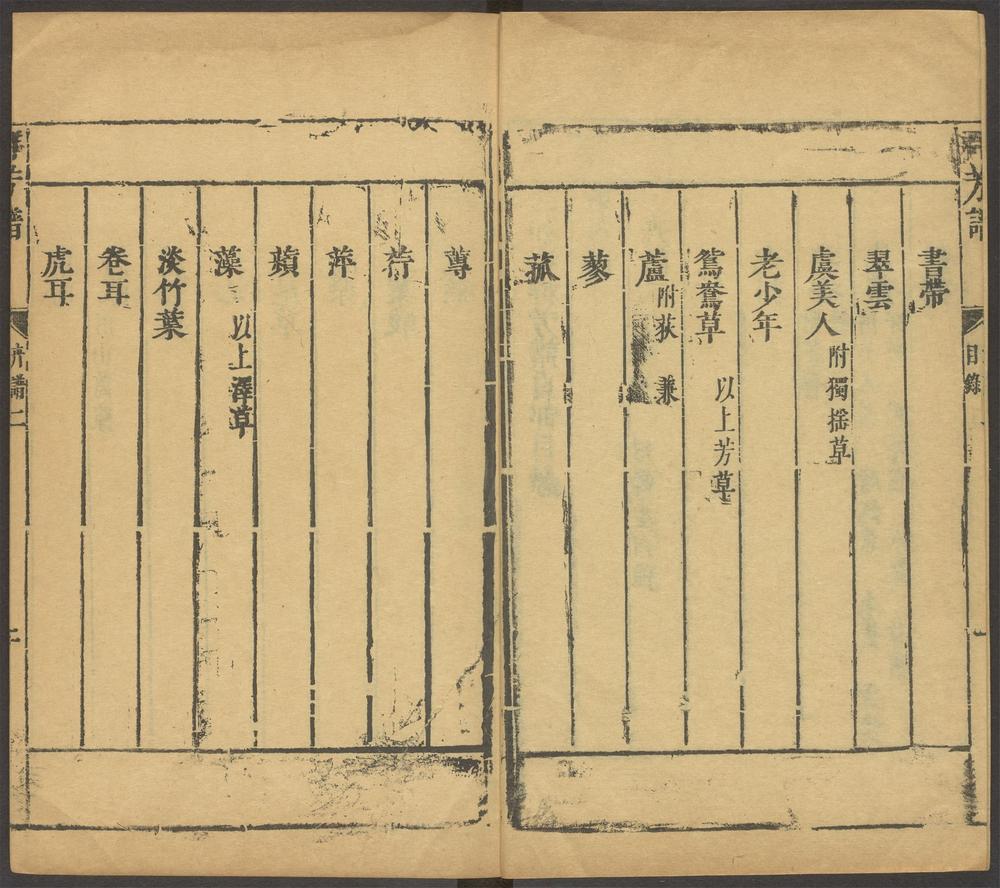 書帶
翠雲
虞美人 附獨揺草
老少年
鴛鴦草 以上芳草
蘆 附荻 蒹
蓼
菰
蓴
荇
萍
蘋
藻 以上澤草
淡竹葉
卷耳
虎耳
芳譜
目錄
卉譜二